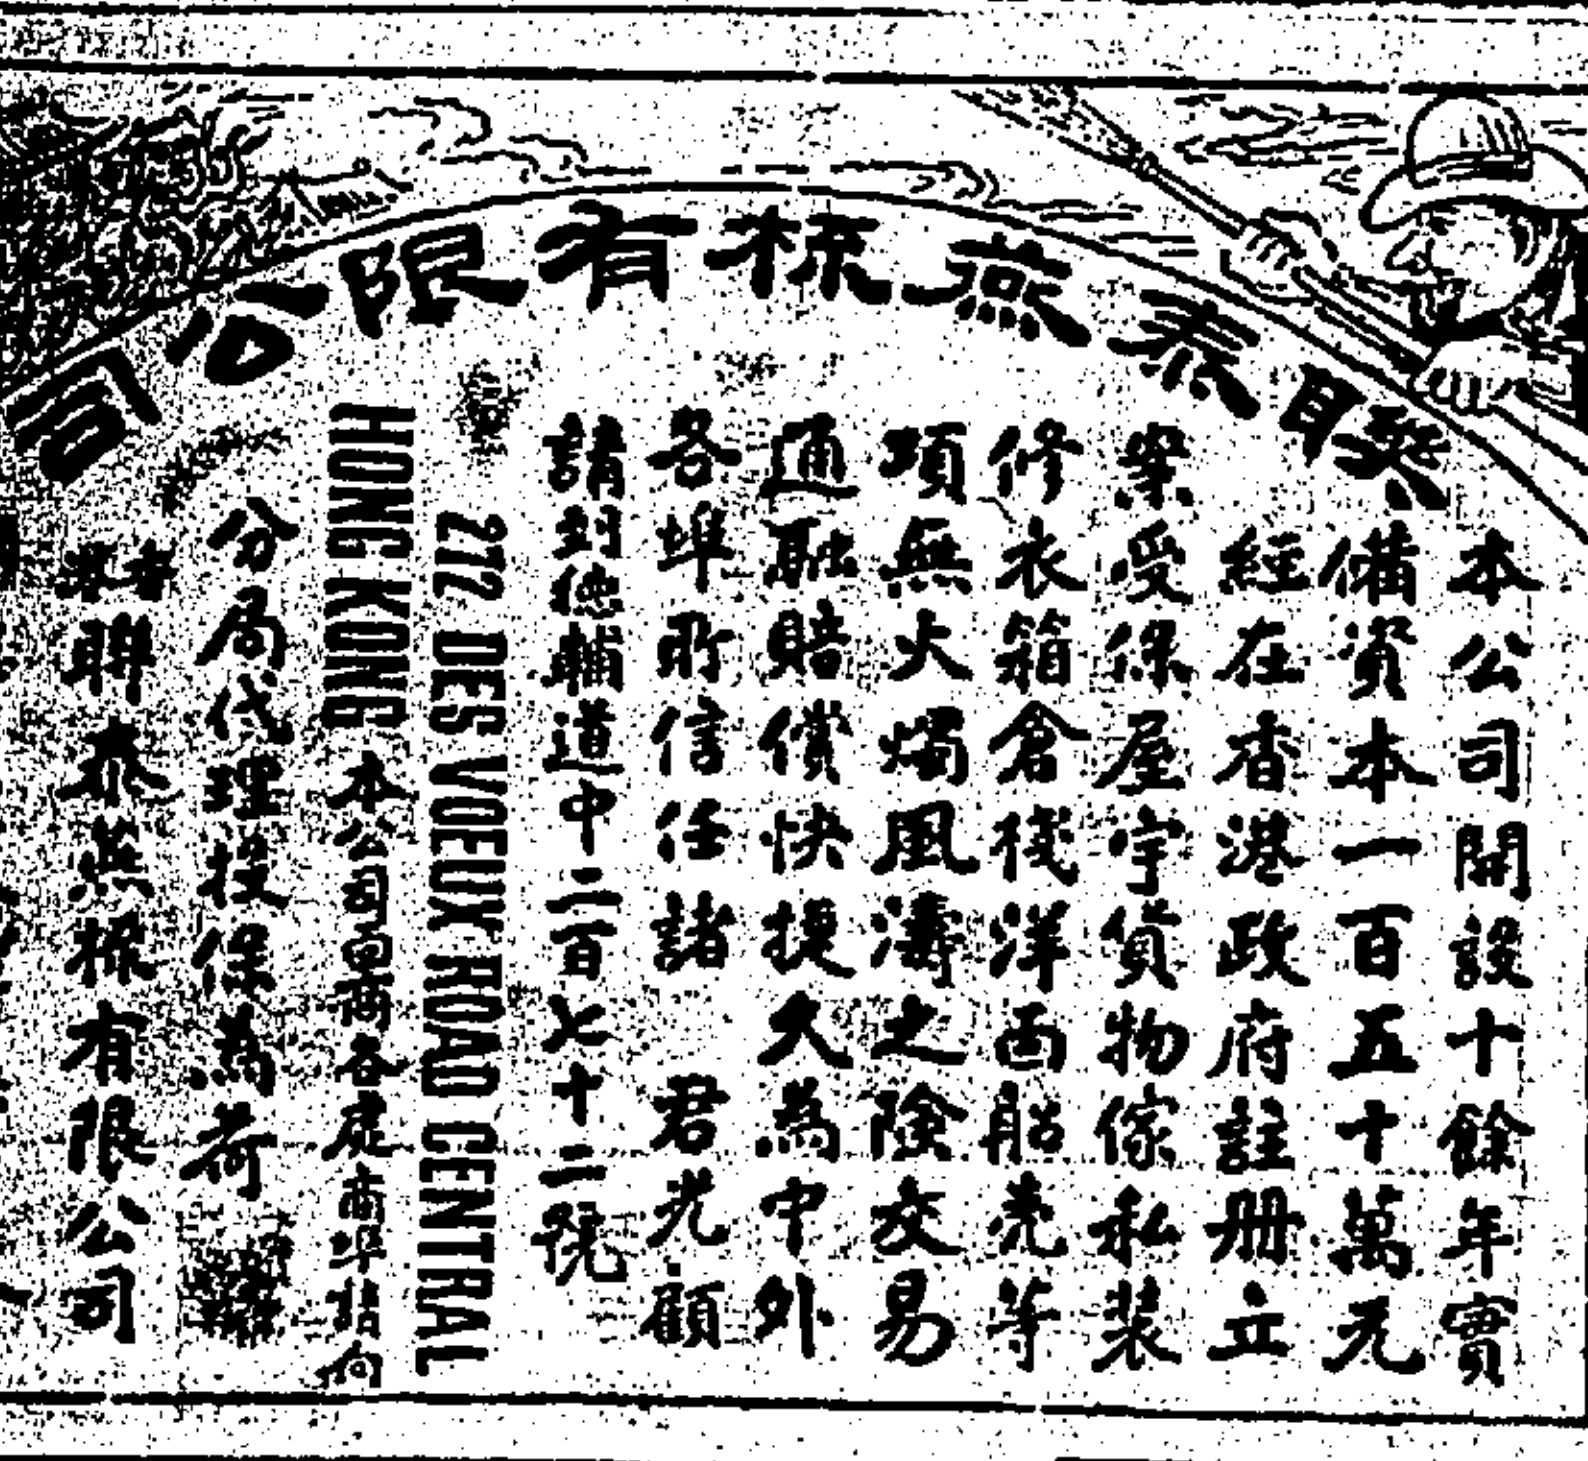 聯泰燕梳有限公司
本公司開設十餘年實
備資本一百五十萬元
經在香港政府註册立
案受保屋宇貨物傢私装
修衣箱倉棧洋面船売等
項無火燭風濤之險交易
通融賠償快捷久為中外
各埠所信任諸 君光顧
請到德輔道中二百七十二號
272 DES VOEUX ROAD CENTRAL
HONG KONG 本公司各處商埠請向
分局代理投保為荷
聯泰燕梳有限公司